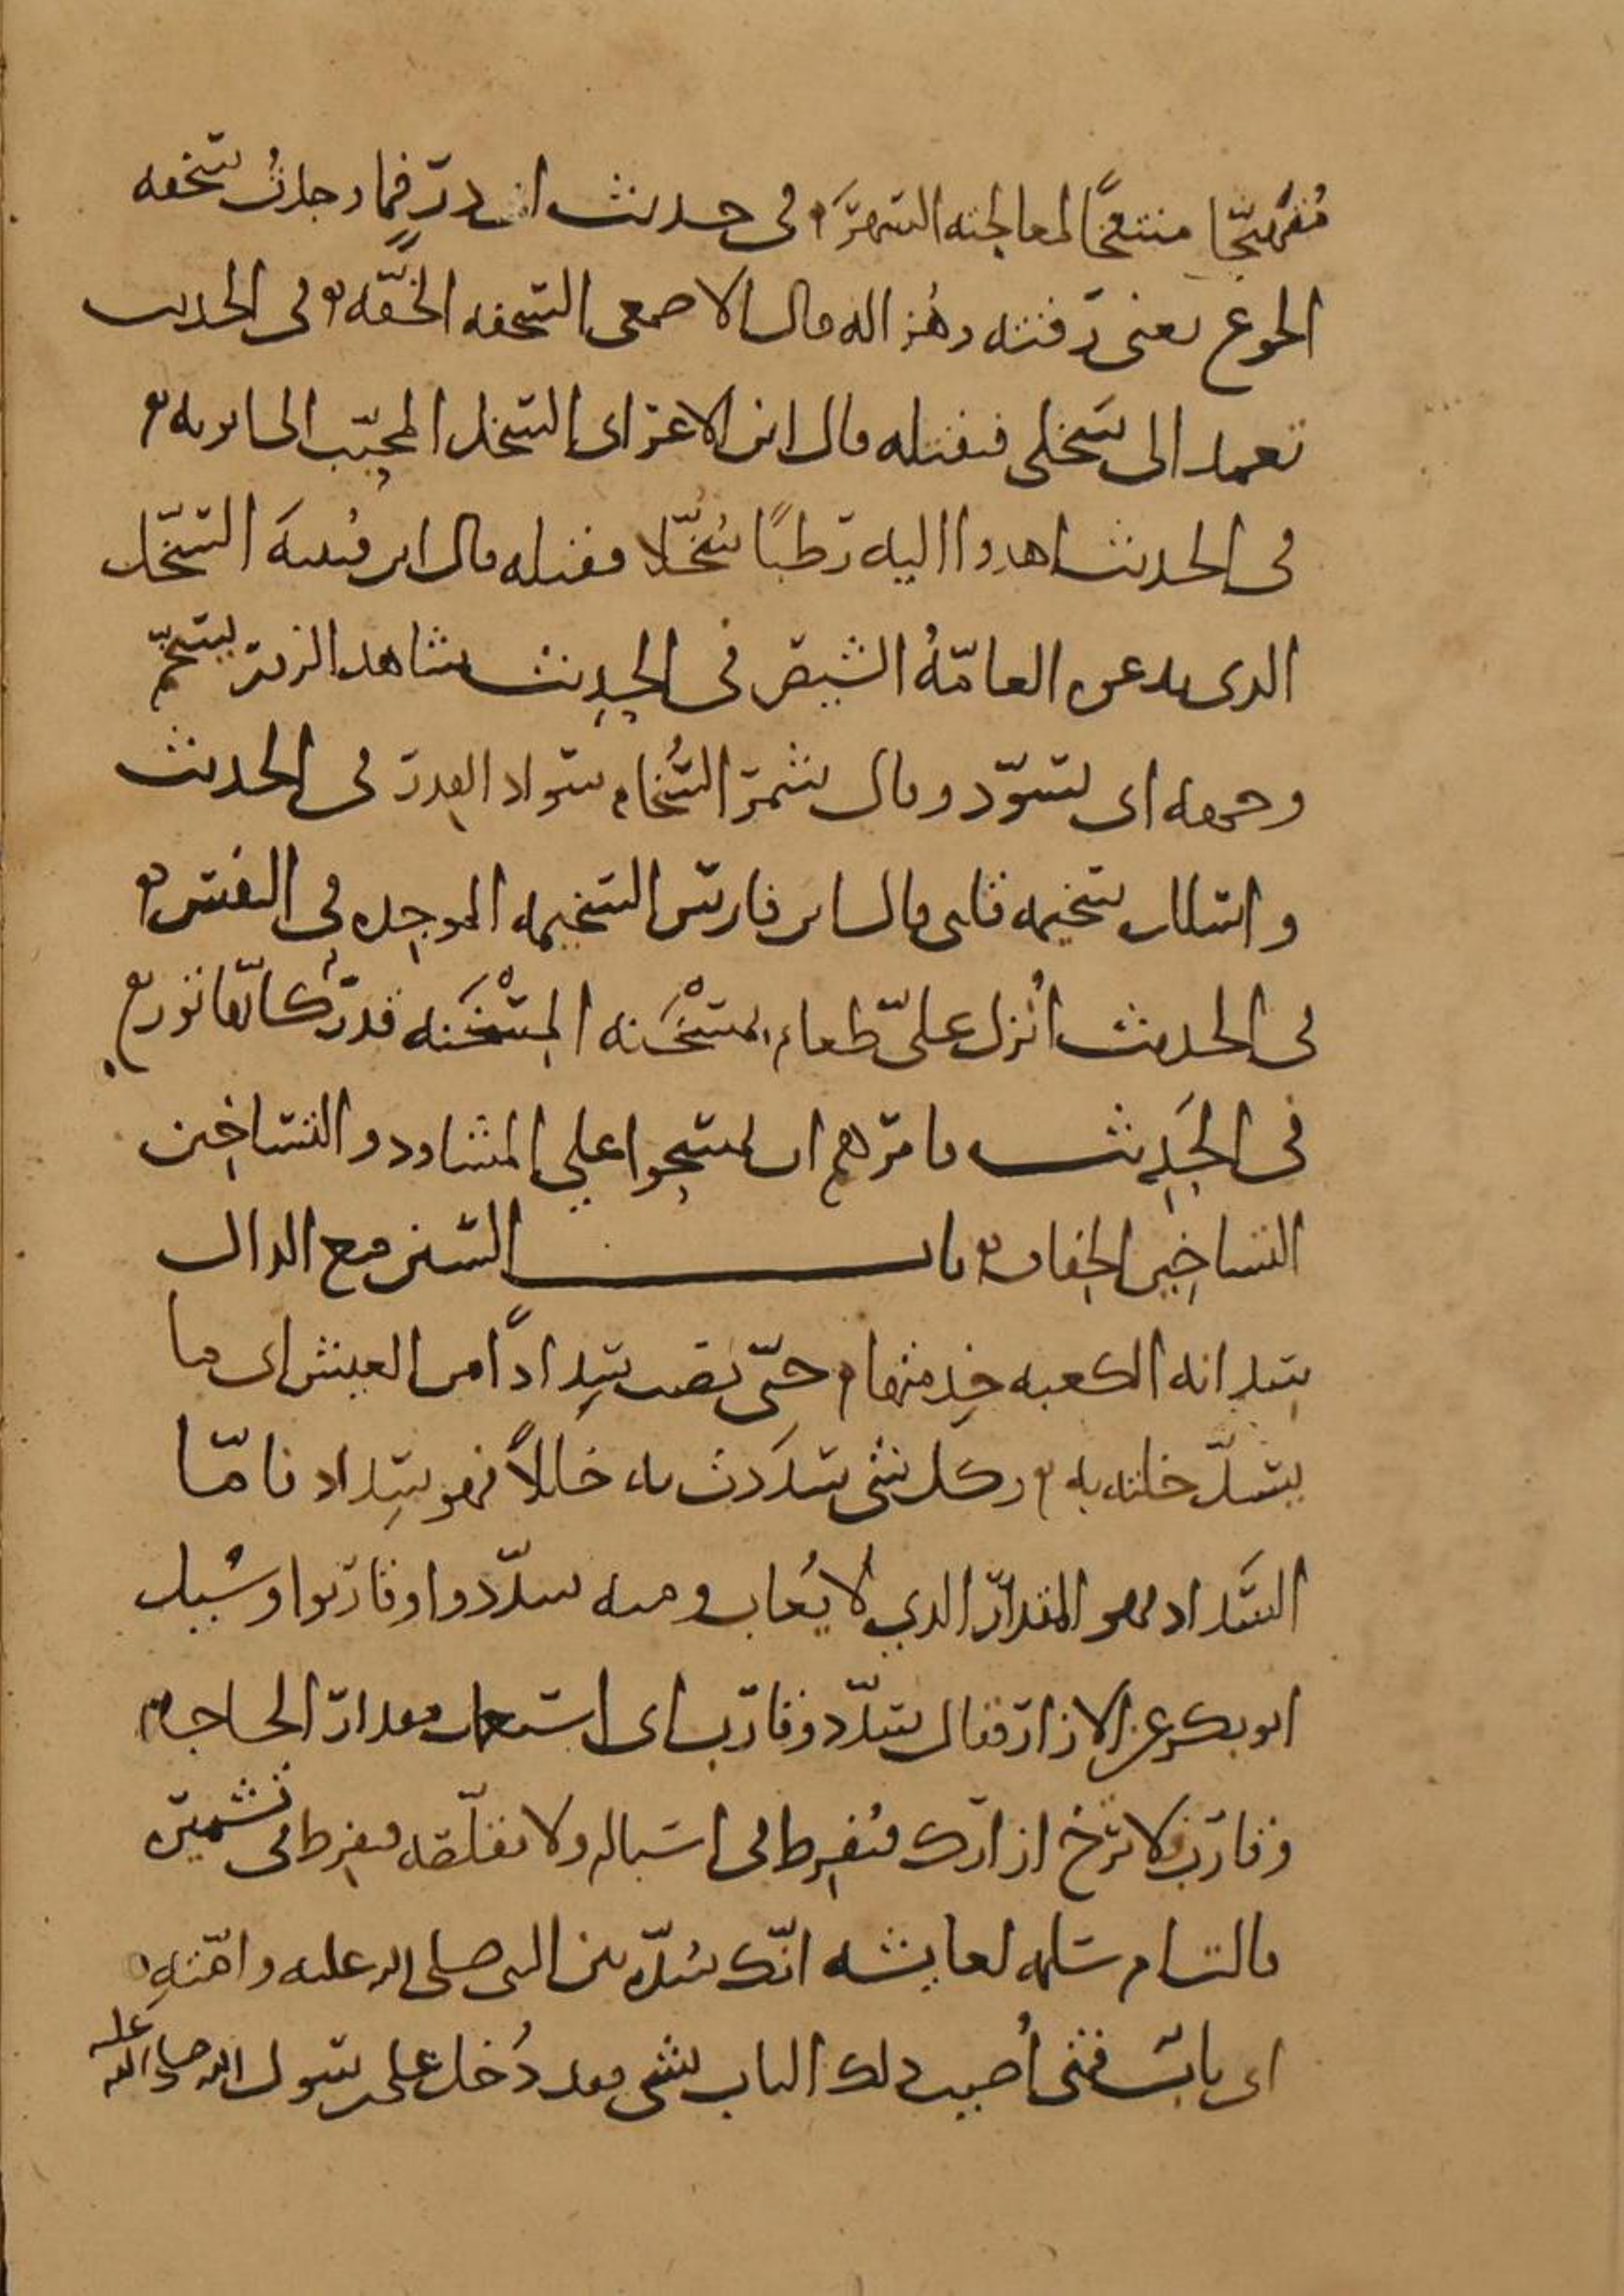 متهيجا منتفخا لمعالجته السهر في حديث ابي ذر فما وجدت سخفه
الجوع يعني رقته وهزاله قال الاصمعي السخفه الخفه في الحديث
تعمد الى سخلي فتقتله قال ابن الاعرابي السخل المحبب الى ابويه
في الحديث اهدوا اليه رطبًا سُخّلا فقبله قال ابن قتيبة السخّل
الذي يدعوه العامّةُ الشيص في الحديث شاهد الزور يسخّم
وجهه اي يسوّد وقال شمر السُخام سواد القدر في الحديث
واسلل سخيمه قلبي قال ابن فارس السخيمه الموجده في النفس
في الحديث اُنزل عليّ طعام بمسْخَنه المسْخَنه قدر كانّها تور
في الحَدِيث فامرهم ان يمسحوا علي المشاوذ والتساخين
التساخين الخفاف باب السين مع الدال
سِدانه الكعبه خِدمتها حتّى يصيب سِدادًا من العيش اي ما
يسدّ خلته به وكل شي سدَدت به خللاً فهو سِداد فامّا
السَّداد فهو المقدار الذي لا يُعاب ومنه سدّدوا وقاربوا وسُيل
ابو بكر عن الازار فقال سدّد وقارب اي استعمل مقدار الحاجه
وقارب فلا ترخ ازارك فتُفرِط في اسباله ولا تقلّصه فتفرِط في تشميره
قالت ام سلمه لعايشه انّك سُدّه بين النبي صلى الله عليه وامّتِهِ
اي باب فمتى اُصيب ذلك الباب بشي فقد دُخل على رسول الله صلى الله عليه